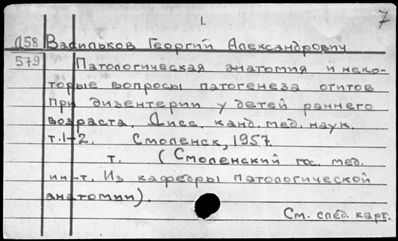 1. 7
Д58 Васильков Георгий Александрович
579 Патологическая анатомия и неко-
торые вопросы патогенеза отитов
при дизентерии у детей раннего
возраста. Дисс. канд. мед. наук.
т. 1-2. Смоленск, 1957.
т. (Смоленский гос. мед.
ин-т. Из кафедры патологической
анатомии).
См. след. карт.